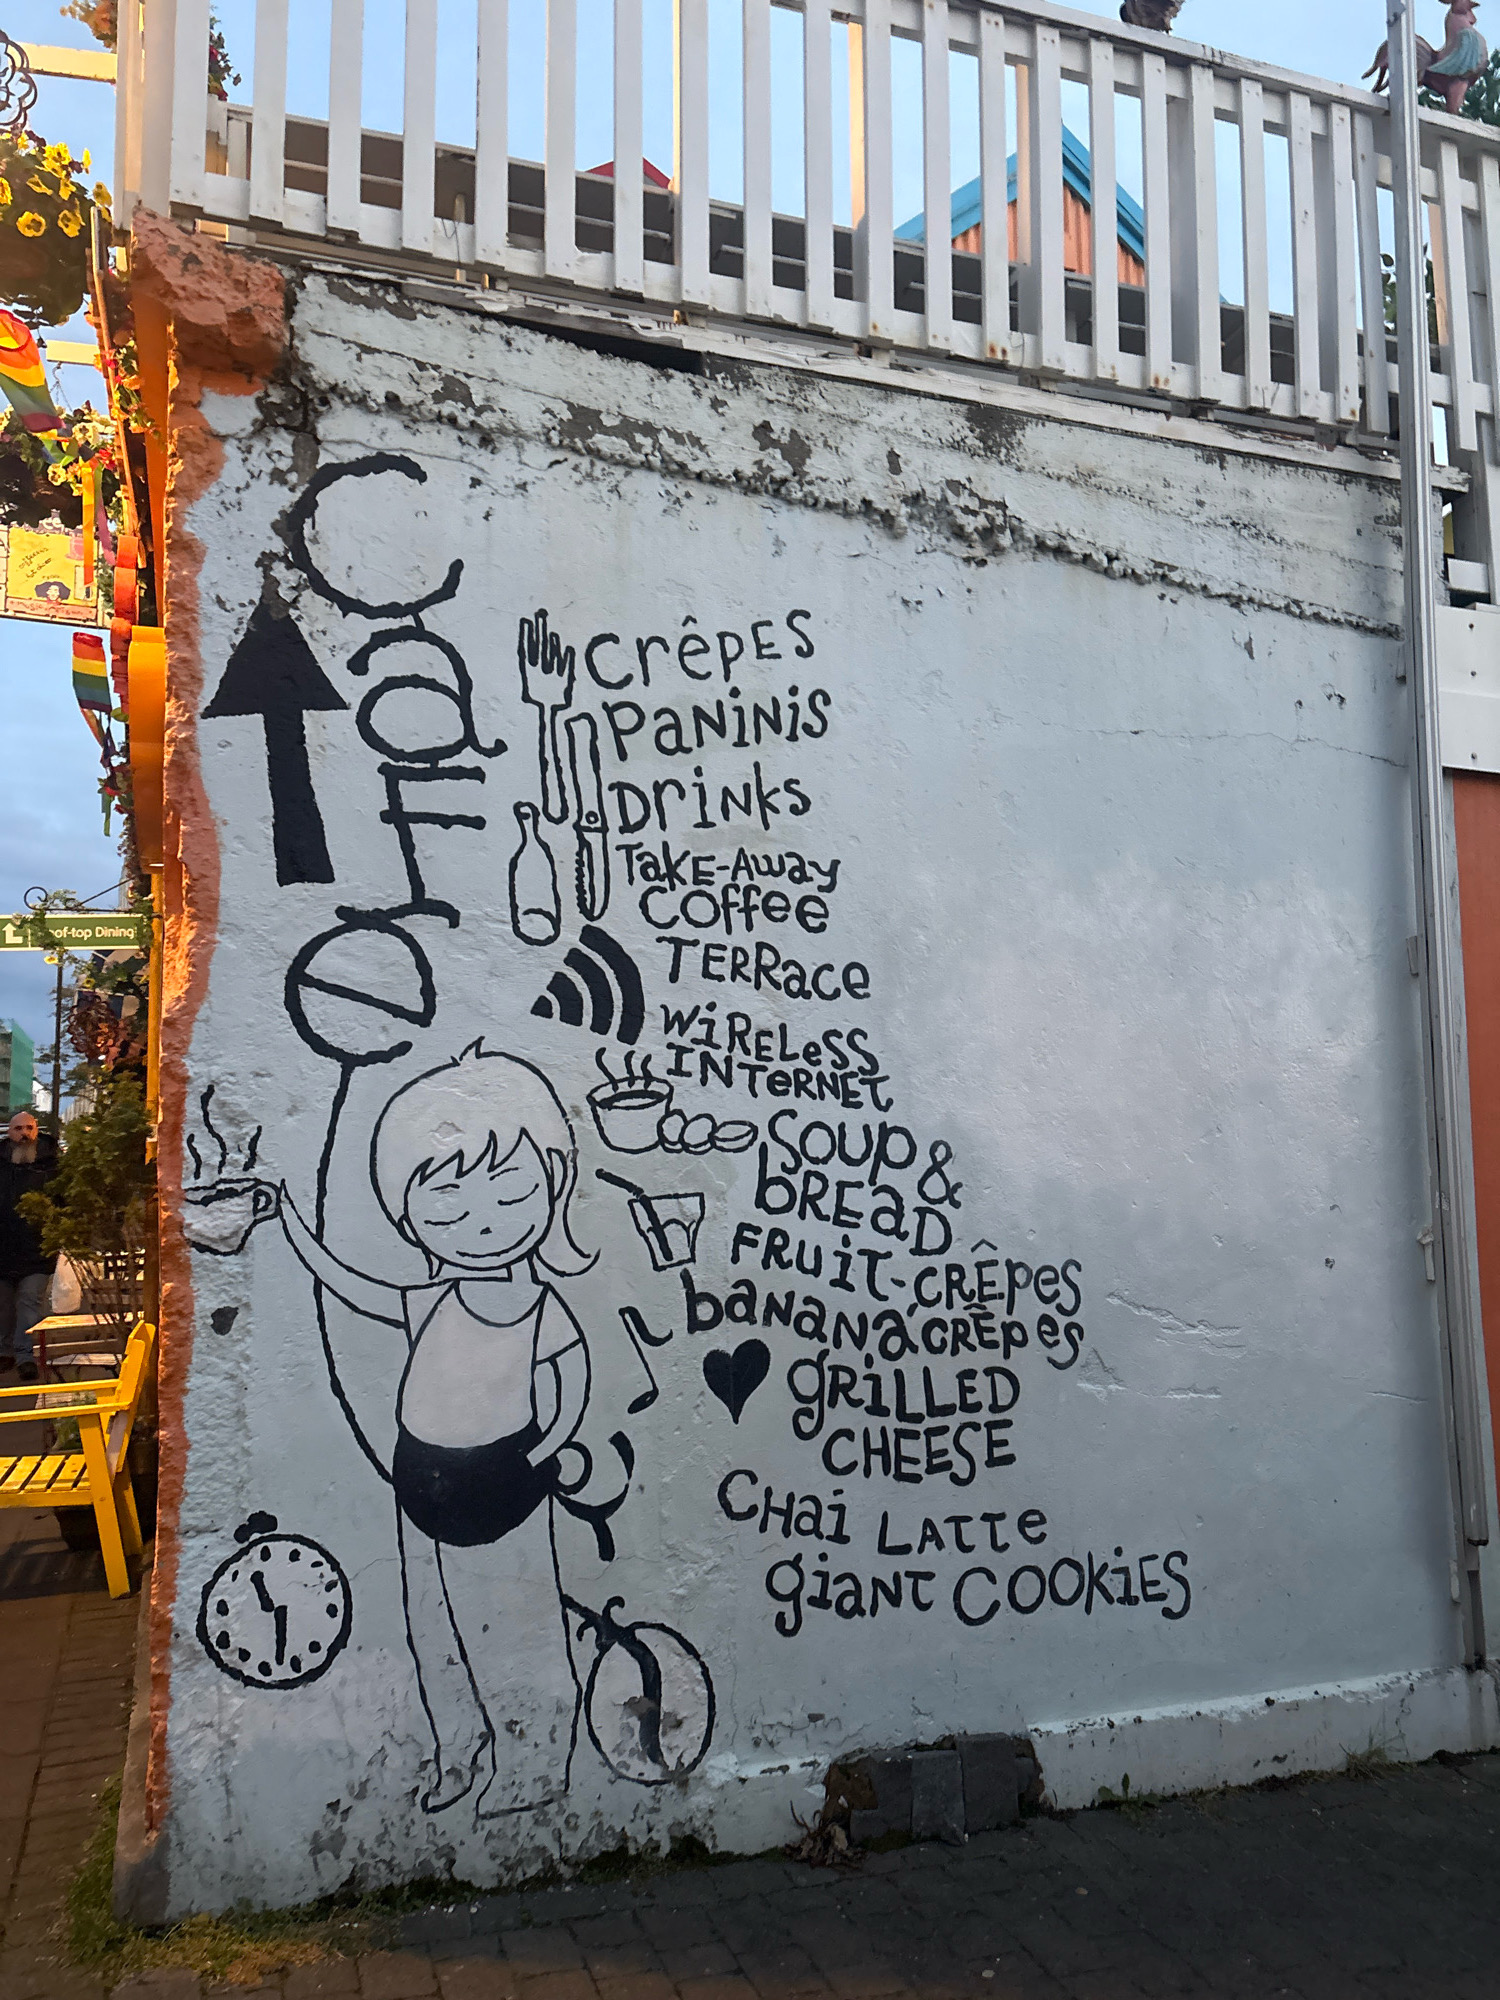 café
crêpes
paninis
Drinks
Take-Away
coffee
Terrace
Wireless
Internet
Soup &
bread
Fruit-crêpes
banana crêpes
grilled
cheese
Chai Latte
giant cookies
of-top Dining